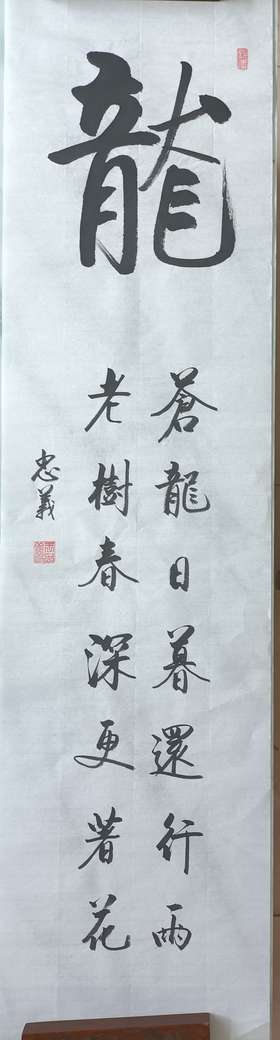 龍
蒼龍日暮還行雨
老樹春深更著花
忠義